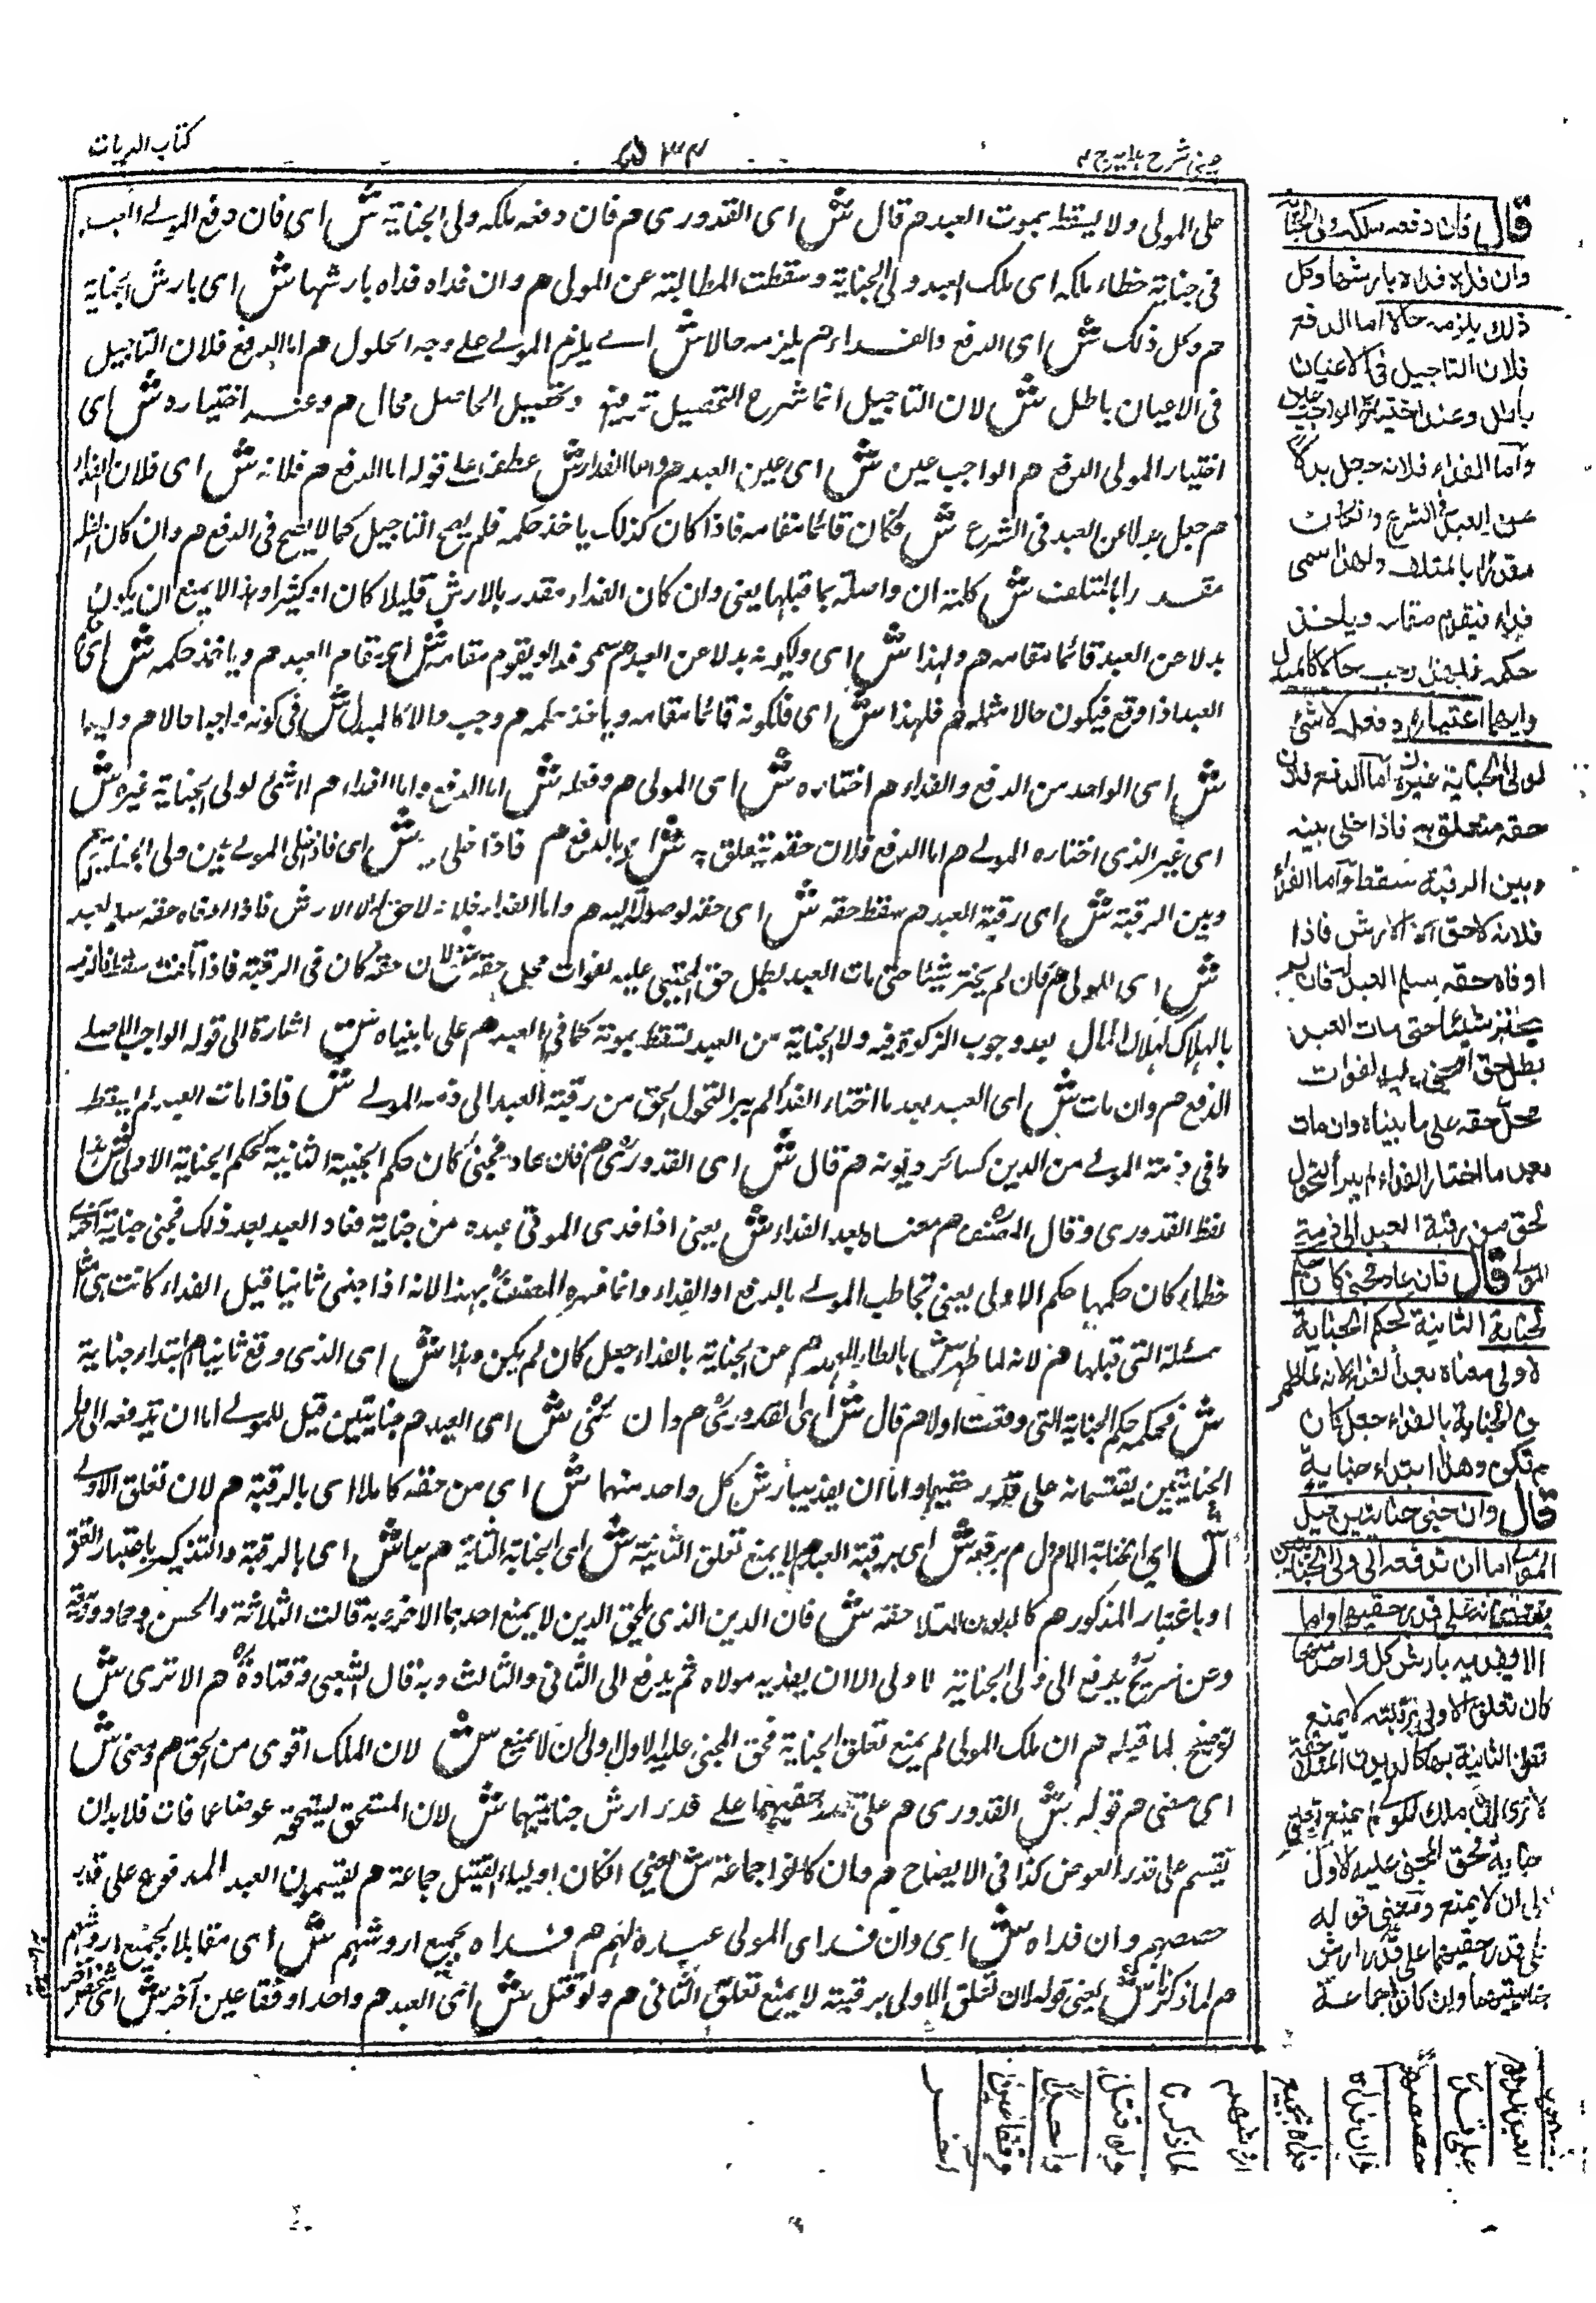 عينى شرح هدايه ج ٤
٥٣٤
كتاب الديات
على المولى ولا يسقط بموت العبد هم قال ش اى القدورى هم فان دفعه ملكه ولى الجناية ش اى فان دفع المولے العبد
فى جناية خطاء ملكه اى ملك العبد ولى الجناية وسقطت المطالبة عن المولى هم وان فداه فداه بارشها ش اى بارش الجناية
هم وكل ذلك ش اى الدفع والفداء هم يلزمه حالا ش اے يلزم المولے علے وجه الحلول هم اما الدفع فلان التاجيل
فى الاعيان باطل ش لان التاجيل انما شرع التحصيل وتحصيل الحاصل محال هم وعند اختياره ش اى
اختيار المولى الدفع هم الواجب عين ش اى عين العبد هم واما الفداء ش عطف علے قوله اما الدفع هم فلانه ش اى فلان الفداء
هم جعل بدلا عن العبد فى الشرع ش فكان قائما مقامه فاذا كان كذلك ياخذ حكمه فلم يصح التاجيل كما لا يصح فى الدفع هم وان كان
مقدرا بالمتلف ش كلمة ان واصلة بما قبلها يعنى وان كان الفداء مقدر بالارش قليلا كان او كثيرا وهذا لا يمنع ان يكون
بدلا عن العبد قائما مقامه هم ولهذا ش اى ولكونه بدلا عن العبد هم سمى فداء ويقوم مقامه ش اى مقام العبد هم وياخذ حكمه ش اى
العبد اذا وقع فيكون حالا مثله هم فلهذا ش اى فلكونه قائما مقامه وياخذ حكمه هم وجب حالا كالمبدل ش فى كونه واجبا حالا هم وايهما
ش اى الواحد من الدفع والفداء هم اختاره ش اى المولى هم وفعله ش اما الدفع واما الفداء هم لا شئ لولى الجناية غيره ش
اى غير الذى اختاره المولے هم اما الدفع فلان حقه متعلق به ش اى بالدفع هم فاذا خلى ش اى فاذا خلى المولے بين ولى الجناية هم
وبين الرقبة ش اى رقبة العبد هم سقط حقه ش اى حقه لوصوله اليه هم واما الفداء فلانه لا حق له الا الارش فاذا اوفاه حقه سلم العبد
ش اى للمولى هم فان لم يختر شيئا حتى مات العبد بطل حق المجنى عليه لفوات محل حقه ش لان حقه كان فى الرقبة فاذا
بالهلاك كهلاك المال بعد وجوب الزكوة فيه ولا الجناية من العبد تسقط بموته كما فى العبد هم على ما بيناه ش اشارة الى قوله الواجب الاصلے
الدفع هم وان مات ش اى العبد بعد ما اختار الفداء لم يبرأ لتحول الحق من رقبة العبد الى ذمة المولے ش فاذا مات العبد لم يسقط
ما فى ذمة المولے من الدين كسائر ديونه هم قال ش اى القدورى هم فان عاد فجنى كان حكم الجنية الثانية كحكم الجناية الاولى ش هذا
لفظ القدورى وقال المصنف هم معناه بعد الفداء ش يعنى اذا فدى المولى عبده من جناية فعاد العبد بعد ذلك فجنى جناية اخرى
خطاء كان حكمها حكم الاولى يعنى تخاطب المولے بالدفع او الفداء وانما فسره المصنف بهذا لانه اذا جنى ثانيا قبل الفداء كانت
مسئلة التى قبلها هم لانه لما طهر ش هم عن الجناية بالفداء جعل كان لم يكن وهذا ش اى الذى وقع ثانيا هم ابتداء جناية
ش فحكمه حكم الجناية التى وقعت اولا هم قال ش اى القدورى هم وان جنى ش اى العبد هم جنايتين قيل للمولے اما ان تدفعه الى ولى
الجنايتين يقتسمانه على قدر حقيهما واما ان يفديه بارش كل واحد منهما ش اى من حقه كاملا اى بالرقبة هم لان تعلق الاولے
ش اى الجناية الاولى هم برقبته ش اى برقبة العبد هم لا يمنع تعلق الثانية ش اى الجناية الثانية هم بها ش اى بالرقبة والتذكير باعتبار
او باعتبار المذكور هم كالديون المتلاحقة ش فان الدين الذى يلحق الدين لا يمنع احدهما الاخر وبه قالت الثلاثة والحسن وحماد
وعن شريح يدفع الى ولى الجناية الاولى الا ان يفديه مولاه ثم يدفع الى الثانى والثالث وبه قال الشعبى وقتادة هم الا ترى ش
توضيح لما قبله هم ان ملك المولى لم يمنع تعلق الجناية فحق المجنى عليه الاول اولى ان لا يمنع ش لان الملك اقوى من الحق هم ومعنى ش
اى معنى هم قوله ش القدورى هم على قدر حقيهما علے قدر ارش جنايتيهما ش لان المستحق يستحقه عوضا عما فات فلا بد ان
يقسم على قدر العوض كذا فى الايضاح هم وان كانوا جماعة ش يعنى ان كان اولياء القتيل جماعة هم يقتسمون العبد المدفوع على قدر
حصصهم وان فداه ش اى وان فدى المولى عبده لهم هم فداه بجميع اروشهم ش اى مقابلا بجميع اروشهم
هم لما ذكرنا ش يعنى قوله لان تعلق الاولى برقبته لا يمنع تعلق الثانى هم ولو قتل ش اى العبد هم واحدا وفقأ عين آخر ش
قال فان دفعه ملكه ولى الجناية
وان فداه فداه بارشها وكل
ذلك يلزمه حالا اما الدفع
فلان التاجيل فى الاعيان
باطل وعند اختياره الواجب عين
واما الفداء فلانه جعل بدلا
عن العبد فى الشرع وان كان
مقدرا بالمتلف ولهذا سمى
فداء فيقوم مقامه وياخذ
حكمه فلهذا وجب حالا كالمبدل
وايهما اختاره وفعله لا شئ
لولى الجناية غيره اما الدفع فلان
حقه متعلق به فاذا خلى بينه
وبين الرقبة سقط واما الفداء
فلانه لا حق له الا الارش فاذا
اوفاه حقه سلم العبد له فان لم
يختر شيئا حتى مات العبد
بطل حق المجنى عليه لفوات
محل حقه على ما بيناه وان مات
بعد ما اختار الفداء لم يبرأ لتحول
الحق من رقبة العبد الى ذمة
المولے قال فان عاد فجنى كان حكم
الجناية الثانية كحكم الجناية
الاولى معناه بعد الفداء لانه لما طهر
عن الجناية بالفداء جعل كان
لم تكن وهذا ابتداء جناية
قال وان جنى جنايتين قيل
للمولے اما ان تدفعه الى ولى الجنايتين
يقتسمانه على قدر حقيهما واما
ان تفديه بارش كل واحد منهما
لان تعلق الاولى برقبته لا يمنع
تعلق الثانية بها كالديون المتلاحقة
الا ترى ان ملك المولى لم يمنع تعلق
الجناية فحق المجنى عليه الاول
اولى ان لا يمنع ومعنى قوله
على قدر حقيهما على قدر ارش
جنايتيهما وان كانوا جماعة
يقتسمون
العبد المدفوع
على قدر
حصصهم
وان فداه
فداه بجميع
اروشهم
لما ذكرنا
ولو قتل
واحدا
وفقأ عين
آخر